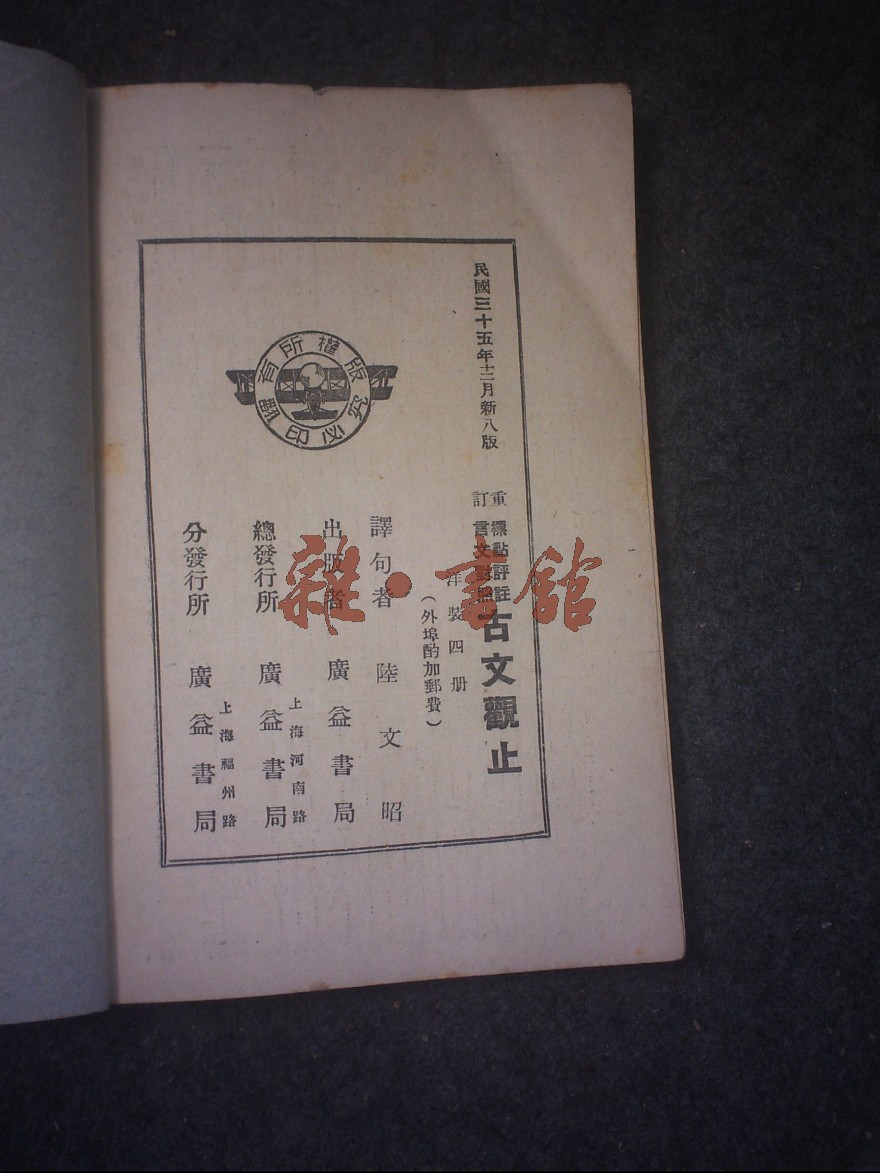 民國三十五年十二月新八版
重訂
標點評註
言文對照
古文觀止
洋裝四册
(外埠酌加郵費)
譯句者 陸文昭
出版者 廣益書局
總發行所 廣益書局
上海河南路
分發行所 廣益書局
上海福州路
版權所有
翻印必究
雜·書館